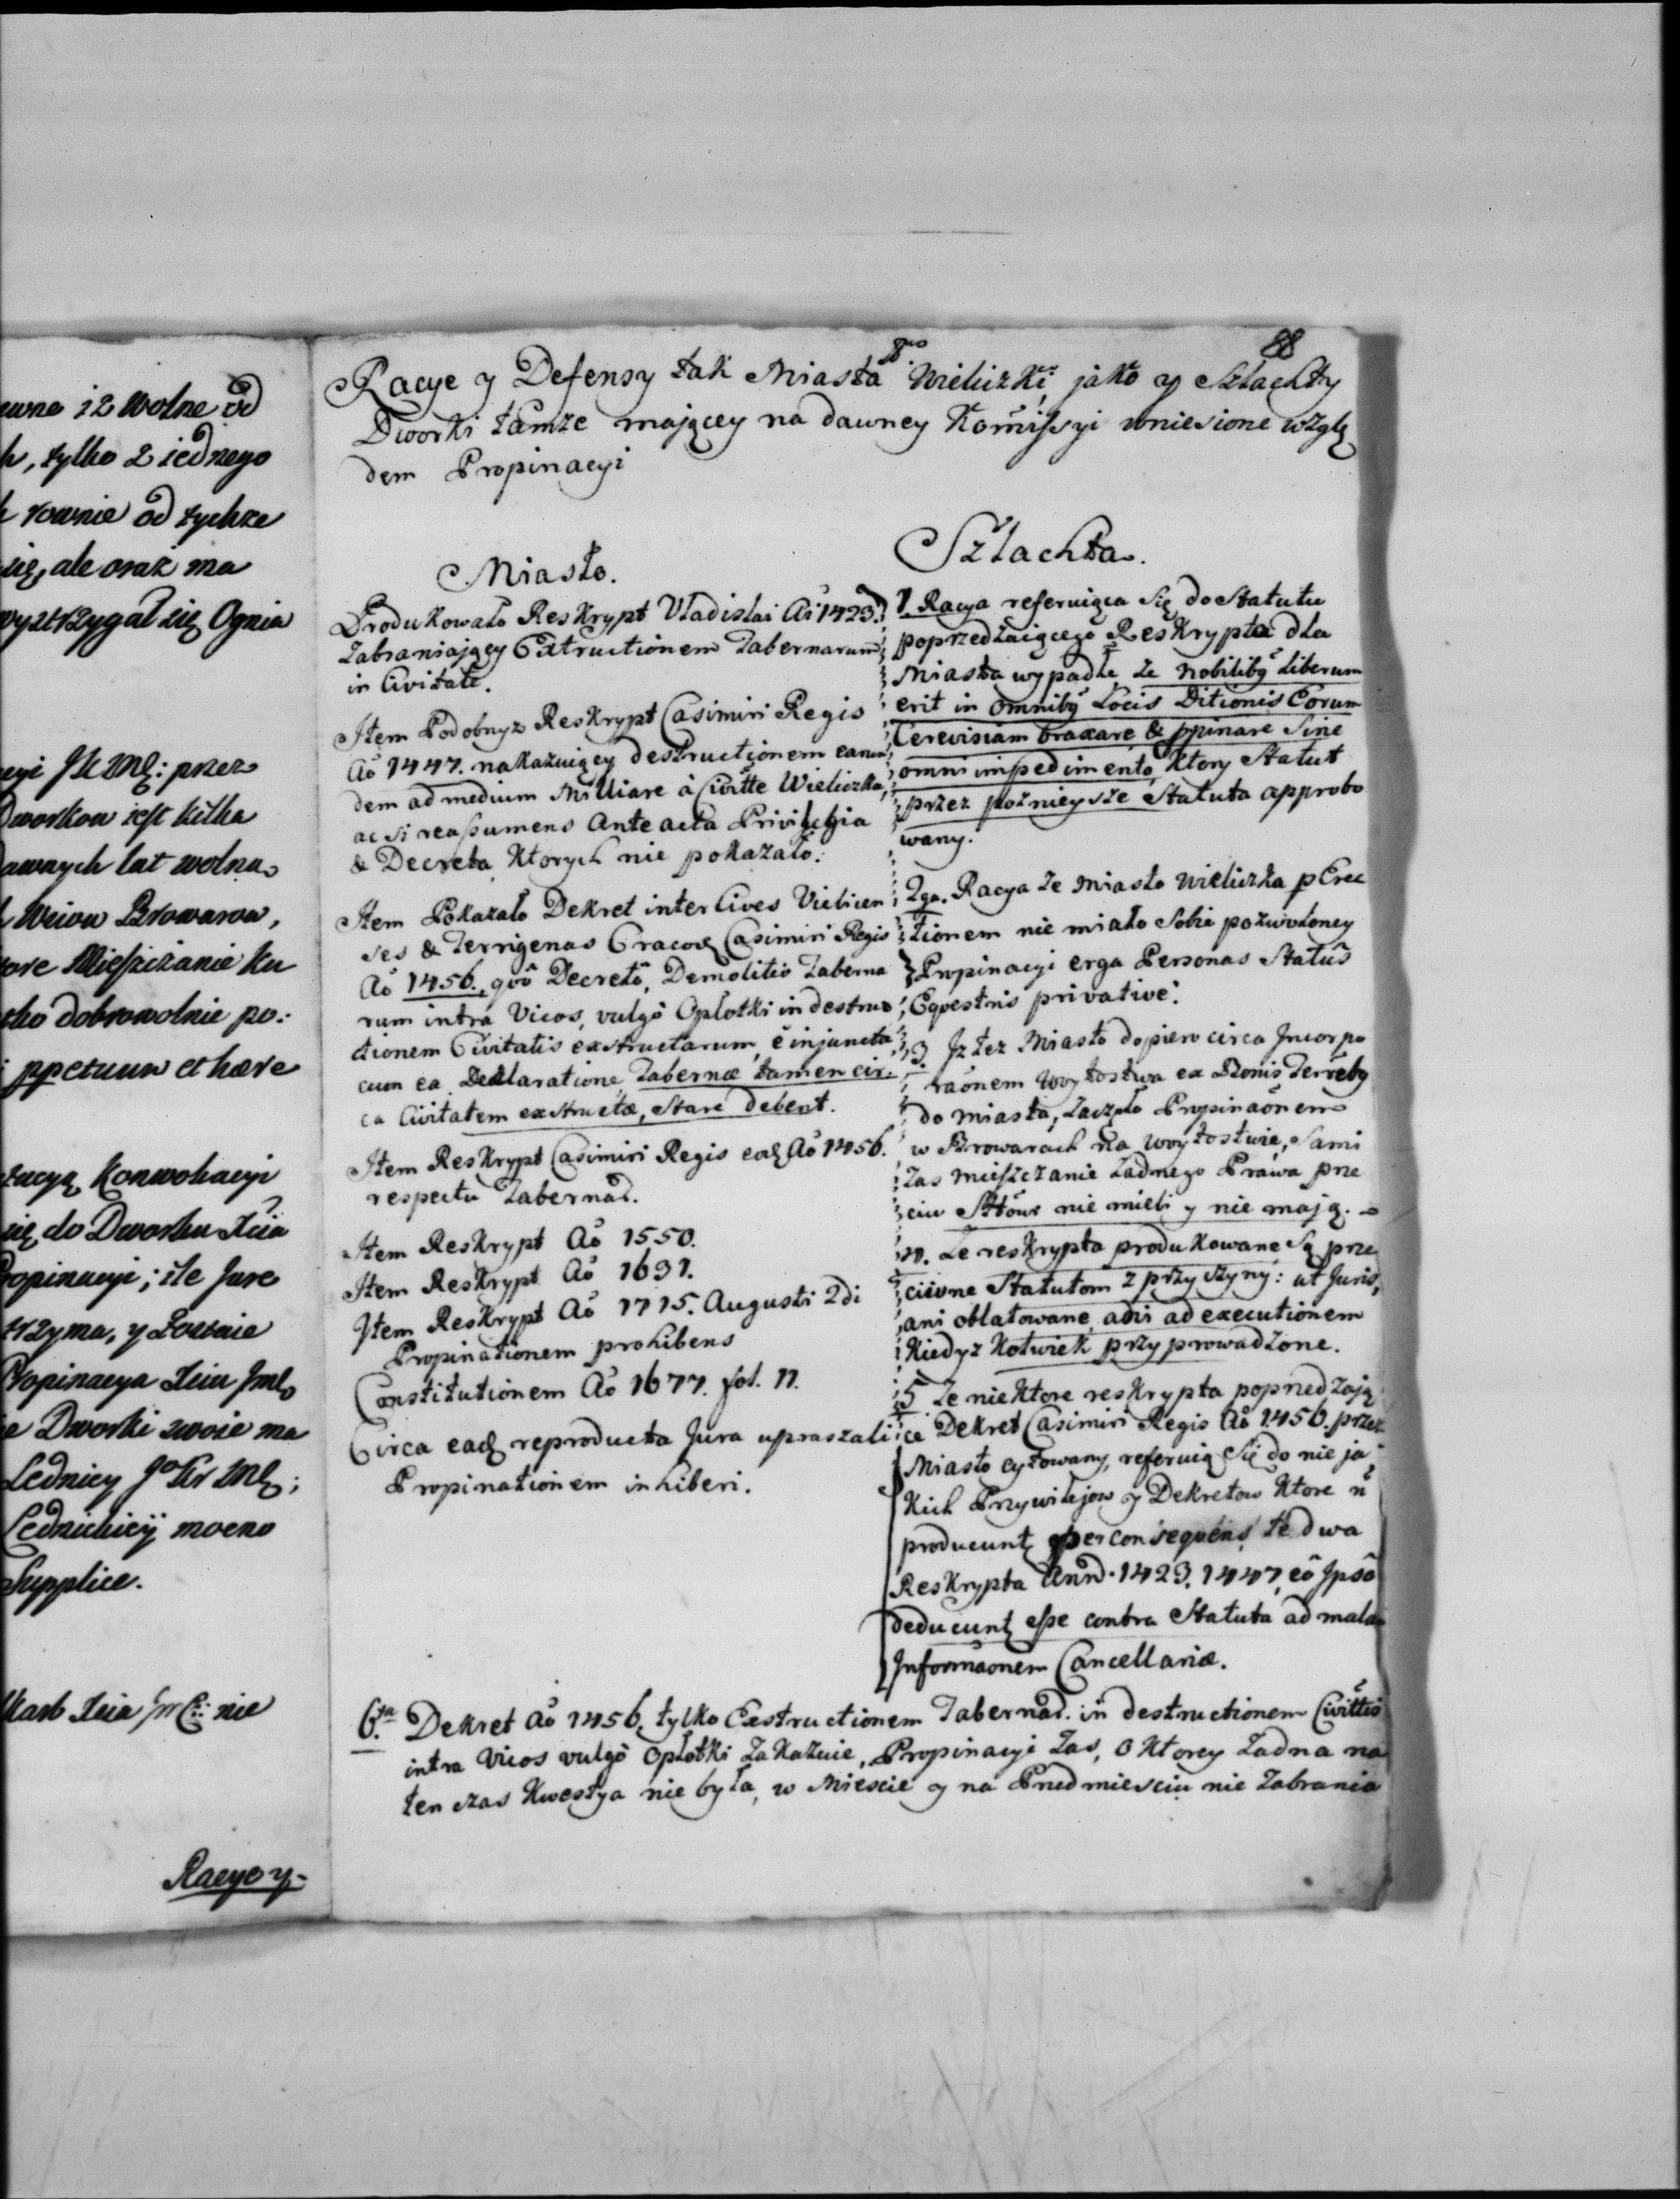 ewne iż wolne od
h, tylko z iednego
h rownie od tychże
się, ale oraz ma
wystrzygał się Ognia
Dworkow iest kilka
dawnych lat wolna
Mieszczanie ku
tko dobrowolnie po:
ppetuum et hære
tucyą Konwokacyi
się do Dworku Xcia
Propinacyi; ile Jure
trzyma, y
Propinacya Xcia Jmci
ie Dworki swoie ma
Lednicy
mocno
Supplice.
nie
Racye y-
88
8vo
Racye y Defensy tak Miasta Wieliczki, jako y Szlachty
Dworki tamże mającey na dawney Komissyi wniesione wzglę
dem Propinacyi
Miasto.
Produkowało Reskrypt Vladislai Aō 1423.
Zabraniający Extructionem Tabernarum
in Civitate.
Item Podobnyż Reskrypt Casimiri Regis
Aō 1447. nakazuięcy destructionem earun
dem ad medium Milliare à Civitte Wieliczka,
ac si reassumens Ante acta Privilegia
& Decreta Ktorych nie pokazało.
Item Pokazało Dekret inter Cives Vielicien
ses & Terrigenas Cracov Casimiri Regis
Aō 1456. quô Decretô, Demolitio Taberna
rum intra Vicos, vulgô Opłotki in destruc
tionem Civitatis exstructarum, ē injuncta
cum ea Declaratione Tabernæ tamen cir-
ca Civitatem exstructæ, stare debent.
Item Reskrypt Casimiri Regis eod Aō 1456.
respectu Tabernar.
Item Reskrypt Aō 1550.
Item Reskrypt Aō 1631.
Item Reskrypt Aō 1715. Augusti 2di
Propinationem prohibens
Constitutionem Aō 1677. fol. 11.
Circa eaq reproducta Jura upraszali
Propinationem inhiberi.
Szlachta.
1. Racya referuiąca się do Statutu
poprzedzaiącego Reskrypta dla
Miasta wypadłe, że Nobilibq liberum
erit in omnibq Locis Ditionis Eorum
Cerevisiam braxare & ppinare Sine
omni impedimento, Ktory Statut
przez poznieysze Statuta approbo
wany.
2ga. Racya że Miasto Wieliczka p Erec
tionem nie miało Sobie pozwoloney
Propinacyi erga Personas Statûs
Eqvestris privative.
3. Iż też Miasto dopiero circa Incorpo
raōnem Woytostwa ex Bonis Terrēbq
do Miasta, zaczęło Propinaōnem
w Browarach na Woytostwie, Sami
zas Mieszczanie żadnego Prawa prze
ciw Sttōwi nie mieli y nie mają.
4. Że reskrypta produkowane Są prze
ciwne Statutom z przyczyny: ut Juris,
ani oblatowane, ani ad executionem
Kiedyż Kolwiek przyprowadzone.
5 Że niektore reskrypta poprzedzają
ce Dekret Casimiri Regis Aō 1456. przez
Miasto cytowany, referuią Się do nie ja
Kich Przywilejow y Dekretow Ktore ñ
producunt per conseqvens te dwa
Reskrypta Ann. 1423. 1447, eô Ipsô
deducunt esse contra Statuta ad malam
Informaōnem Cancellariæ.
6ta. Dekret Aō 1456. tylko Exstructionem Tabernar. in destructionem Civittis
intra Vicos vulgô Opłotki Zakazuie, Propinacyi zas, o Ktorey żadna na
ten czas Kwestya nie była, w Miescie y na Przedmiesciu nie Zabrania